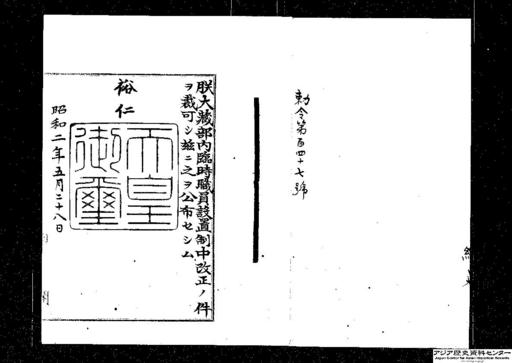 勅令第百四十七號
朕大藏部內臨時職員設置制中改正ノ件
ヲ裁可シ玆ニ之ヲ公布セシム
裕仁
天皇御璽
昭和二年五月二十八日
アジア歴史資料センター
Japan Center for Asian Historical Records